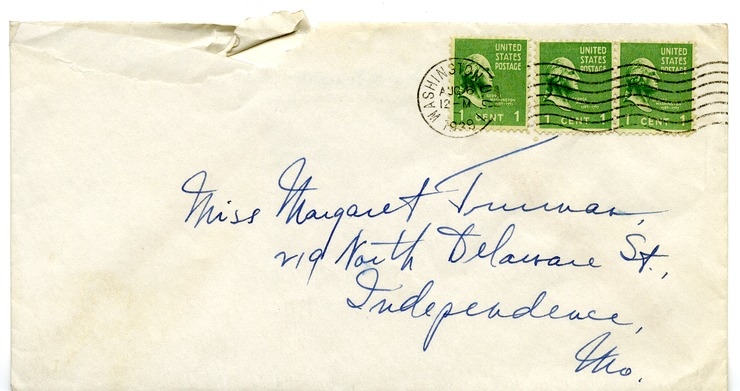 UNITED
STATES
POSTAGE
1 CENT 1
UNITED
STATES
POSTAGE
1 CENT 1
UNITED
STATES
POSTAGE
1 CENT 1
WASHINGTON
AUG
12 M
1939
Miss Margaret Truman,
219 North Delaware St.,
Independence,
Mo.